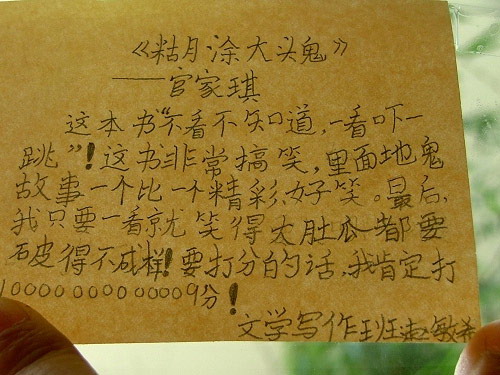 《糊涂大头鬼》
——官家琪
这本书“不看不知道，一看吓一
跳”！这书非常搞笑，里面地鬼
故事一个比一个精彩、好笑。最后，
我只要一看就笑得大肚瓜都要
破得不成样！要打分的话，我肯定打
10000000000009分！
文学写作班赵敏希